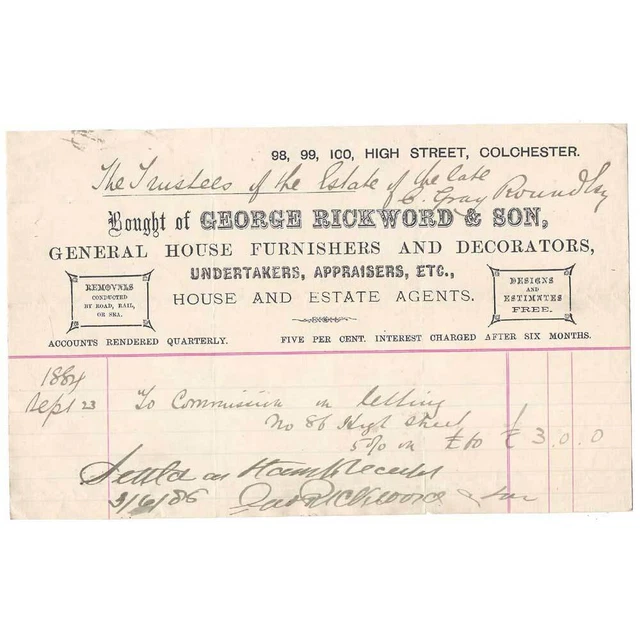 98, 99, 100, HIGH STREET, COLCHESTER.
The Trustees of the Estate of the late
C. Gray Round Esq
Bought of GEORGE RICKWORD & SON,
GENERAL HOUSE FURNISHERS AND DECORATORS,
UNDERTAKERS, APPRAISERS, ETC.,
HOUSE AND ESTATE AGENTS.
REMOVALS
CONDUCTED
BY ROAD, RAIL,
OR SEA.
DESIGNS
AND
ESTIMATES
FREE.
ACCOUNTS RENDERED QUARTERLY. FIVE PER CENT. INTEREST CHARGED AFTER SIX MONTHS.
1884
Sept 23 To Commission on letting
No 86 High Street
5% on £60 £ 3.0.0
Settld as Stamp Receipt
3/6/86 Geo Rickword & Son